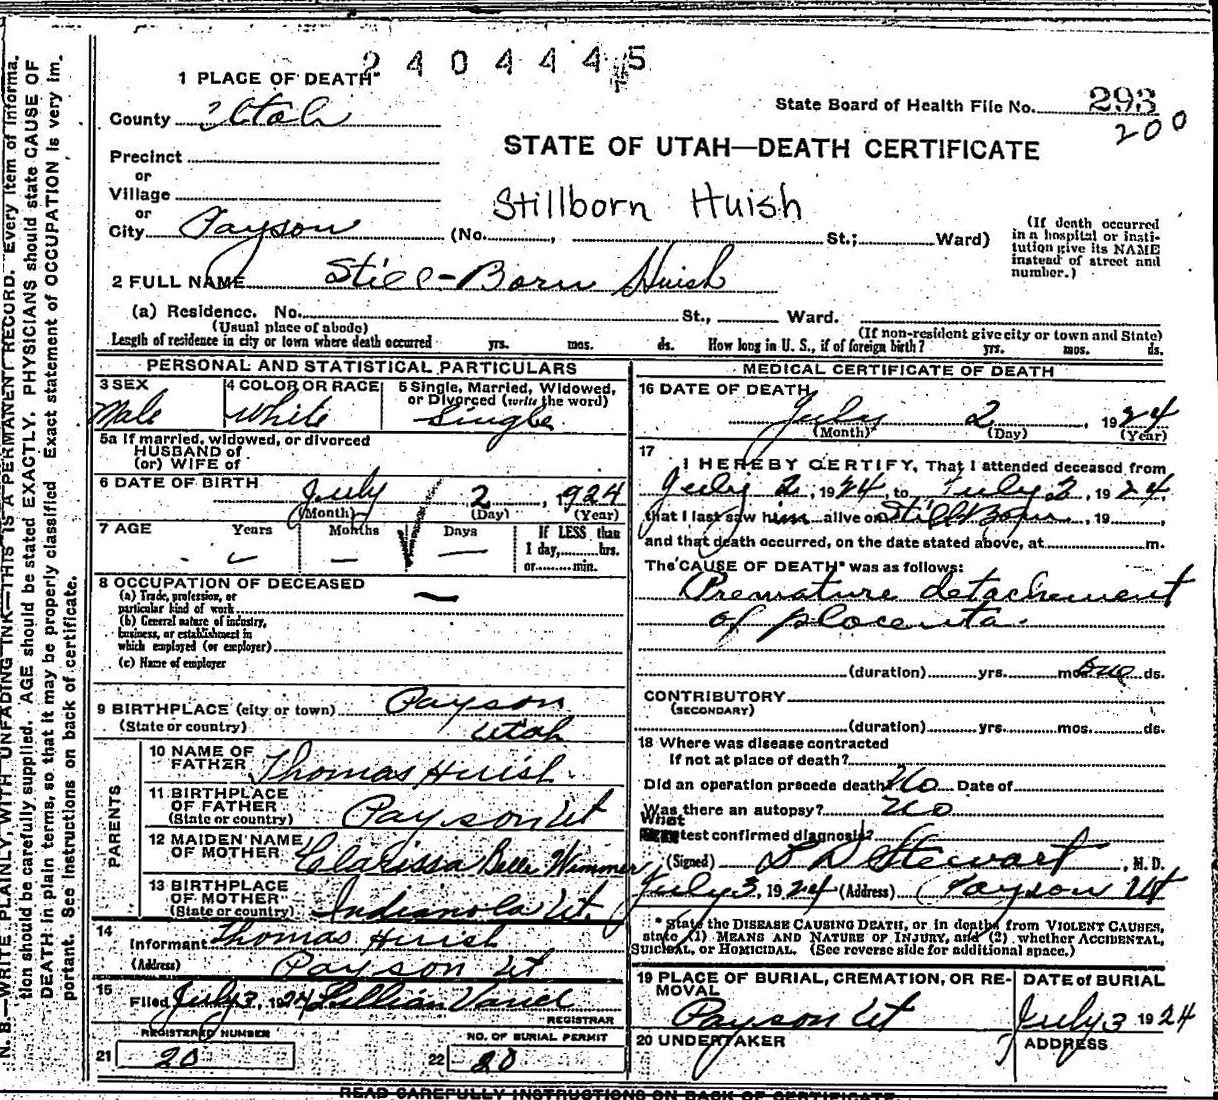 2404445
1 PLACE OF DEATH
County Utah
State Board of Health File No. 293
200
STATE OF UTAH—DEATH CERTIFICATE
Precinct
or
Village
or
Stillborn Huish
City Payson (No. , St.; Ward)
(If death occurred in a hospital or insti-
tution give its NAME
instead of street and
number.)
2 FULL NAME Still-Born Huish
(a) Residence. No. St., Ward.
(Usual place of abode) (If non-resident give city or town and State)
Length of residence in city or town where death occurred yrs. mos. ds. How long in U. S., if of foreign birth? yrs. mos. ds.
PERSONAL AND STATISTICAL PARTICULARS
3 SEX
Male
4 COLOR OR RACE
White
5 Single, Married, Widowed,
or Divorced (write the word)
Single
5a If married, widowed, or divorced
HUSBAND of
(or) WIFE of
6 DATE OF BIRTH
July 2, 1924
(Month) (Day) (Year)
7 AGE Years Months Days
If LESS than
1 day, hrs.
or min.
8 OCCUPATION OF DECEASED
(a) Trade, profession, or
particular kind of work
(b) General nature of industry,
business, or establishment in
which employed (or employer)
(c) Name of employer
9 BIRTHPLACE (city or town) Payson
(State or country) Utah
PARENTS
10 NAME OF
FATHER Thomas Huish.
11 BIRTHPLACE
OF FATHER
(State or country) Payson Ut
12 MAIDEN NAME
OF MOTHER Clarissa Belle Wimmer
13 BIRTHPLACE
OF MOTHER
(State or country) Indianola Ut.
14
Informant Thomas Huish
(Address) Payson Ut
15
Filed July 3, 1924 Lillian
REGISTRAR
REGISTERED NUMBER
21 20
NO. OF BURIAL PERMIT
22 20
MEDICAL CERTIFICATE OF DEATH
16 DATE OF DEATH
July 2, 1924
(Month) (Day) (Year)
17
I HEREBY CERTIFY, That I attended deceased from
July 2, 1924, to July 2, 1924,
that I last saw him alive on StillBorn, 19 ,
and that death occurred, on the date stated above, at m.
The CAUSE OF DEATH* was as follows:
Premature detachement
of placenta.
(duration) yrs. mos. ds.
CONTRIBUTORY
(SECONDARY)
(duration) yrs. mos. ds.
18 Where was disease contracted
If not at place of death?
Did an operation precede death? No Date of
Was there an autopsy? No
What test confirmed diagnosis?
(Signed) L D Stewart, M. D.
July 3, 1924 (Address) Payson Ut
* State the DISEASE CAUSING DEATH, or in deaths from VIOLENT CAUSES,
state (1) MEANS AND NATURE OF INJURY, and (2) whether ACCIDENTAL,
SUICIDAL, or HOMICIDAL. (See reverse side for additional space.)
19 PLACE OF BURIAL, CREMATION, OR RE-
MOVAL
Payson Ut
DATE of BURIAL
July 3 1924
20 UNDERTAKER
ADDRESS
READ CAREFULLY INSTRUCTIONS ON BACK OF CERTIFICATE.
N. B.—WRITE PLAINLY, WITH UNFADING INK—THIS IS A PERMANENT RECORD. Every item of informa-
tion should be carefully supplied. AGE should be stated EXACTLY. PHYSICIANS should state CAUSE OF
DEATH in plain terms, so that it may be properly classified. Exact statement of OCCUPATION is very im-
portant. See instructions on back of certificate.